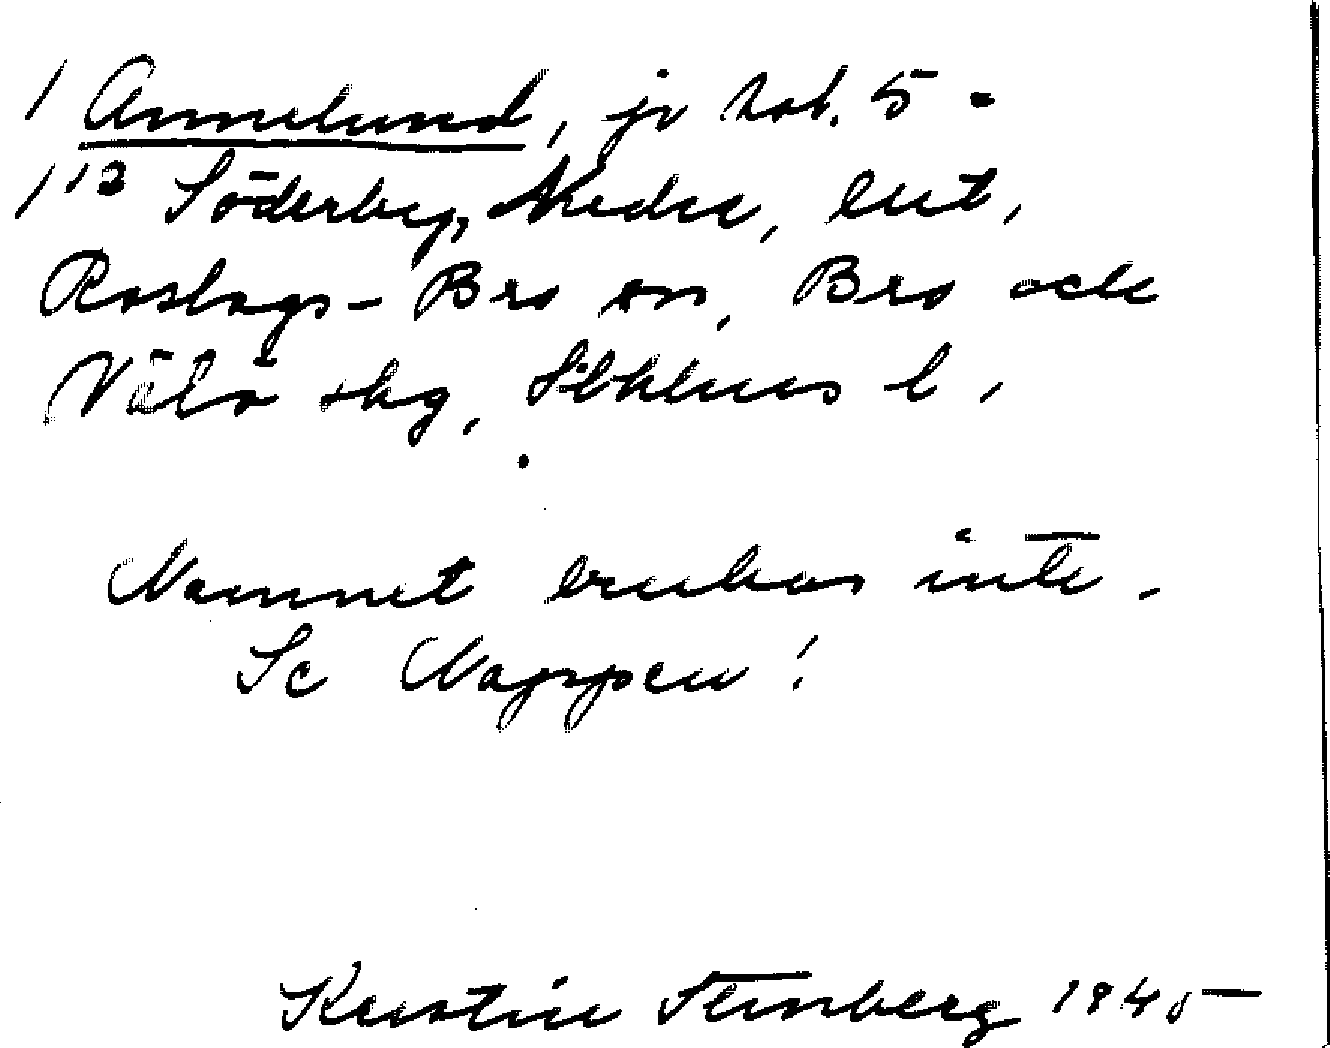 / Annelund, jr hab. 5 -
/ 12 Söderby, Nedre, ent,
Roslags-Bro sn, Bro och
Vätö skg, Sthlms l.
Namnet brukas inte.
Se Nappen!
Kerstin Stenberg 1945